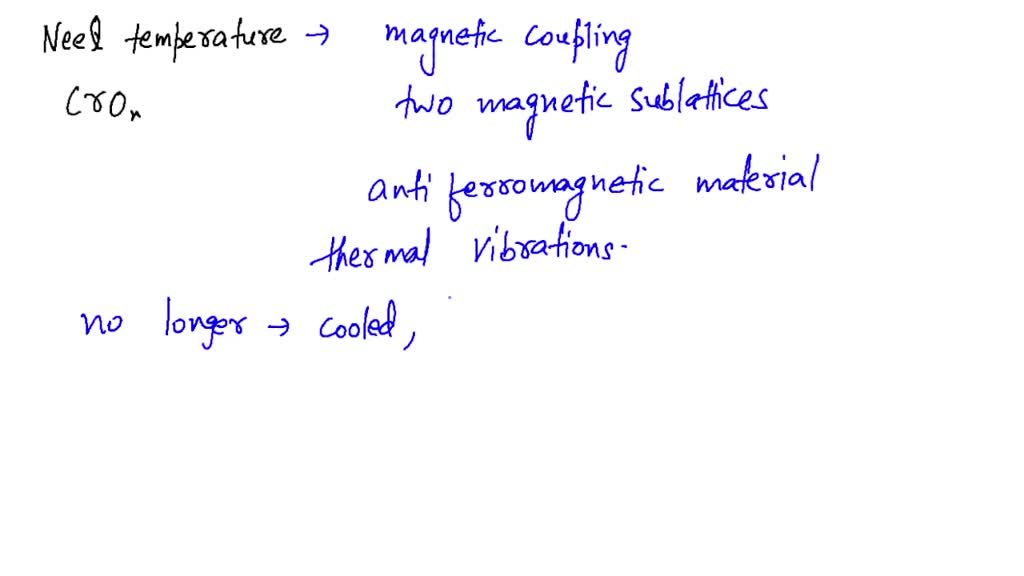 Neel temperature → magnetic coupling
CrOn two magnetic sublattices
anti ferromagnetic material
thermal vibrations.
no longer → cooled,